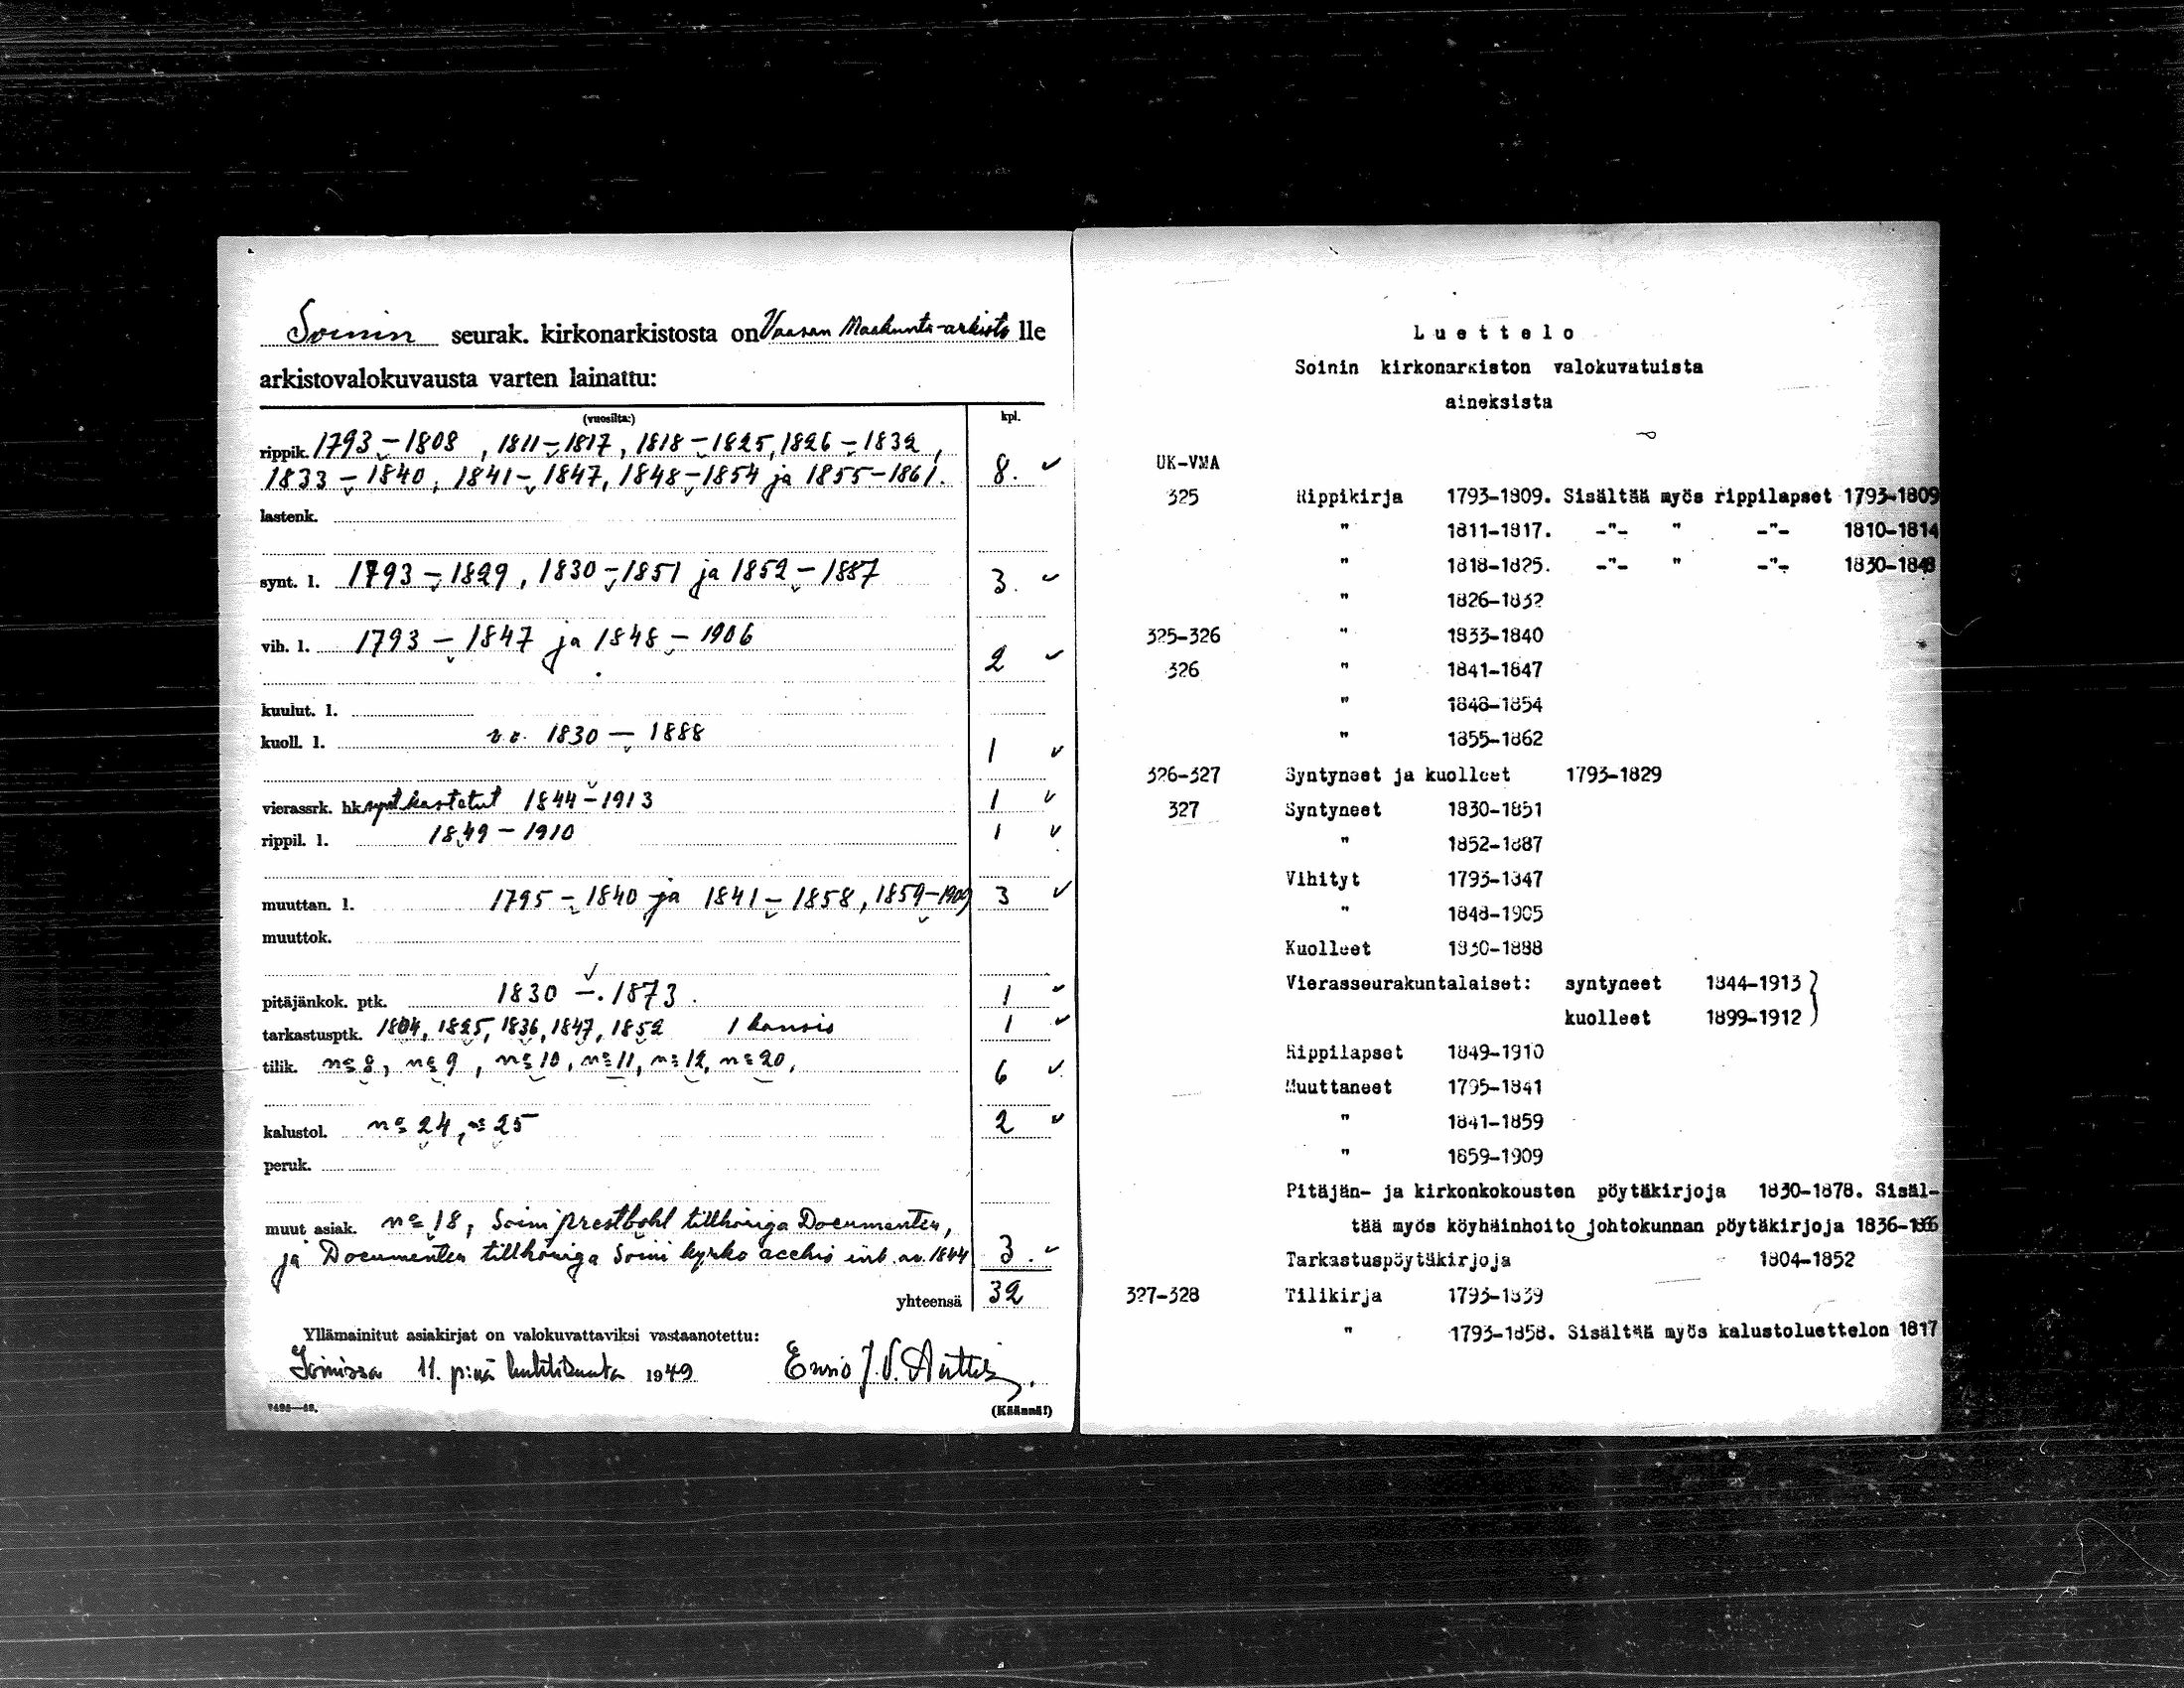 Soinin seurak. kirkonarkistosta on Vaasan Maakunta-arkisto lle
arkistovalokuvausta varten lainattu:
(vuosilta:) kpl.
rippik. 1793–1808, 1811–1817, 1818–1825, 1826–1832,
1833–1840, 1841–1847, 1848–1854 ja 1855–1861. 8.
lastenk.
synt. l. 1793–1829, 1830–1851 ja 1852–1887 3.
vih. l. 1793–1847 ja 1848–1906 2
kuulut. l.
kuoll. l. v.v. 1830–1888 1
vierassrk. hk. synt. kastetut 1844–1913 1
rippil. l. 1849–1910 1
muuttan. l. 1795–1840 ja 1841–1858, 1859–1909 3
muuttok.
pitäjänkok. ptk. 1830–1873. 1
tarkastusptk. 1804, 1825, 1836, 1847, 1852 1 kansio 1
tilik. no 8, no 9, no 10, no 11, no 12, no 20, 6
kalustol. no 24, no 25 2
peruk.
muut asiak. no 18, Soini prestbohl tillhöriga Documenter,
ja Documenter tillhöriga Soini kyrko acchis 1844 3.
yhteensä 32
Yllämainitut asiakirjat on valokuvattaviksi vastaanotettu:
Soinissa 11. p:nä huhtikuuta 1949
(Käännä!)
Luettelo
Soinin kirkonarkiston valokuvatuista
aineksista
UK-VMA
325 Rippikirja 1793-1809. Sisältää myös rippilapset 1793-1809
" 1811-1817. -"- " -"- 1810-1814
" 1818-1825. -"- " -"- 1830-1848
" 1826-1832
325-326 " 1833-1840
326 " 1841-1847
" 1848-1854
" 1855-1862
326-327 Syntyneet ja kuolleet 1793-1829
327 Syntyneet 1830-1851
" 1852-1887
Vihityt 1793-1847
" 1848-1905
Kuolleet 1830-1888
Vierasseurakuntalaiset: syntyneet 1844-1913
kuolleet 1899-1912
Rippilapset 1849-1910
Muuttaneet 1795-1841
" 1841-1859
" 1859-1909
Pitäjän- ja kirkonkokousten pöytäkirjoja 1830-1878. Sisäl-
tää myös köyhäinhoito johtokunnan pöytäkirjoja 1836-1866
Tarkastuspöytäkirjoja 1804-1852
327-328 Tilikirja 1793-1839
" 1793-1858. Sisältää myös kalustoluettelon 1817